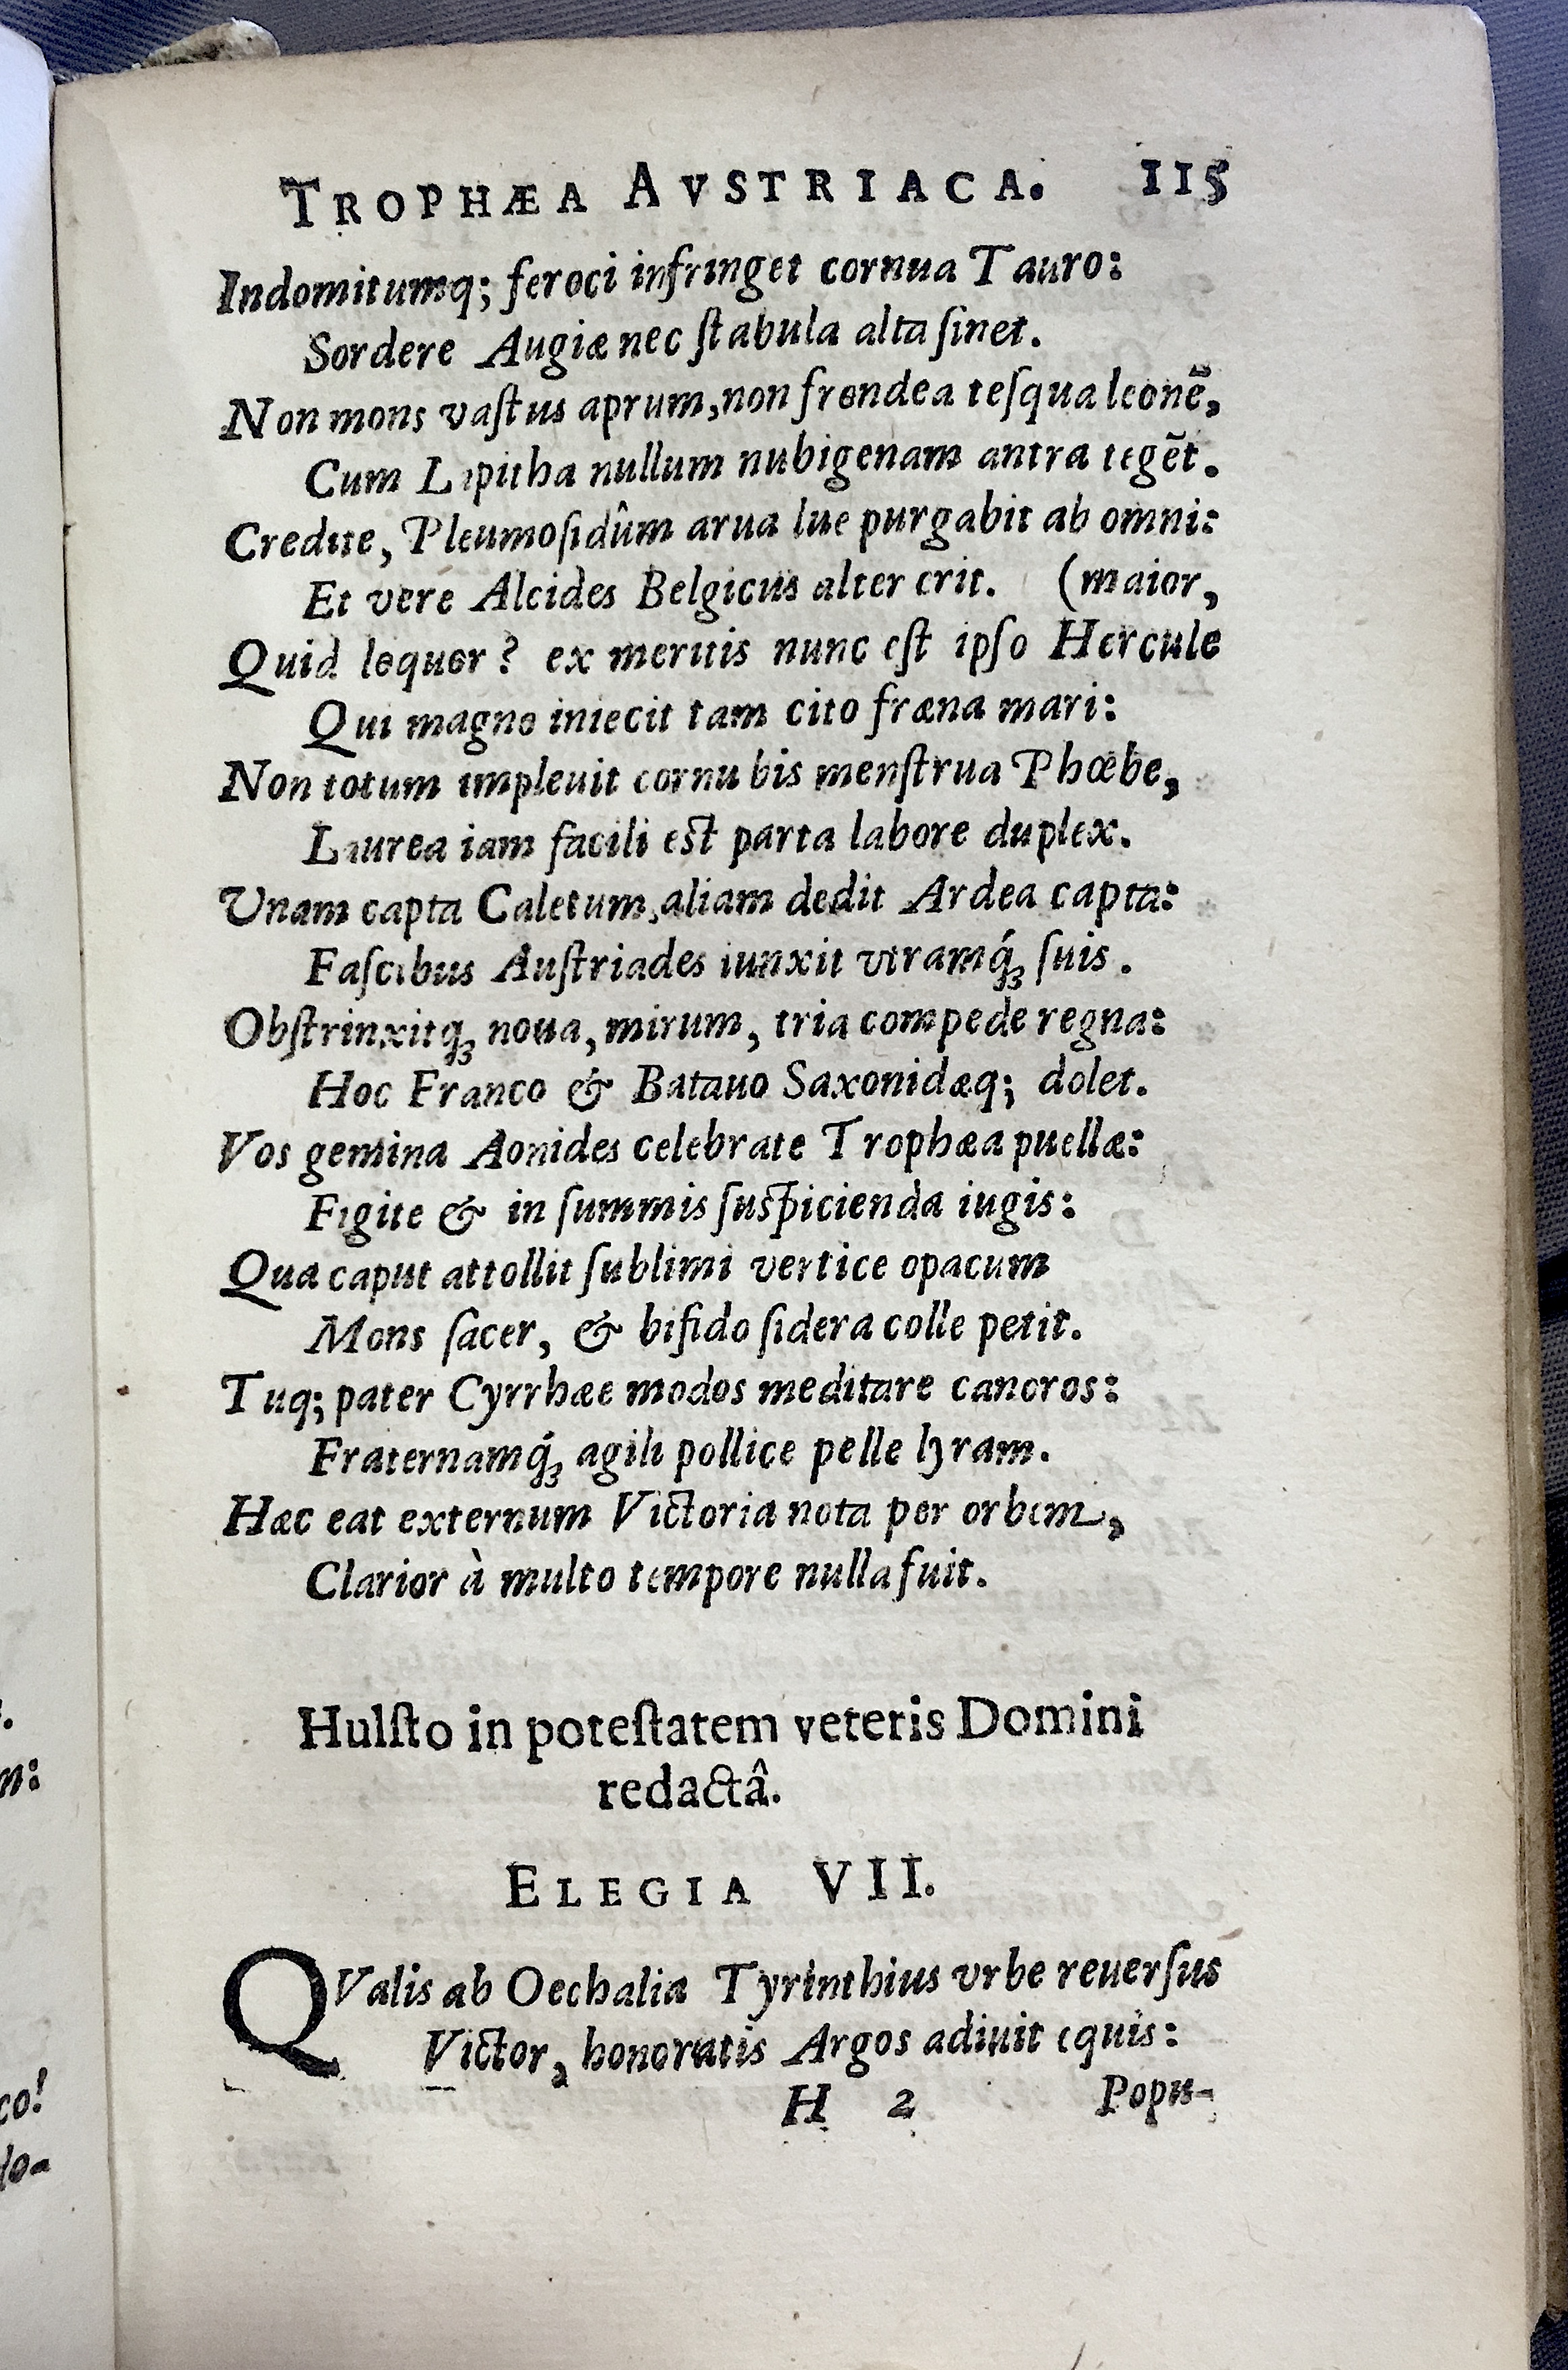 TROPHÆA AVSTRIACA. 115
Indomitumq; feroci infringet cornua Tauro:
Sordere Augiæ nec ſtabula alta ſinet.
Non mons vaſtus aprum, non frondea teſqua leonē,
Cum Lapitha nullum nubigenam antra tegēt.
Credite, Pleumoſidûm arua lue purgabit ab omni:
Et vere Alcides Belgicus alter erit. (maior,
Quid loquor? ex meritis nunc eſt ipſo Hercule
Qui magno iniecit tam cito fræna mari:
Non totum impleuit cornu bis menſtrua Phœbe,
Laurea iam facili eſt parta labore duplex.
Vnam capta Caletum, aliam dedit Ardea capta:
Faſcibus Auſtriades iunxit vtramq́ꝫ ſuis.
Obſtrinxitqꝫ noua, mirum, tria compede regna:
Hoc Franco & Batauo Saxonidæq; dolet.
Vos gemina Aonides celebrate Trophæa puellæ:
Figite & in ſummis ſuſpicienda iugis:
Qua caput attollit ſublimi vertice opacum
Mons ſacer, & bifido ſidera colle petit.
Tuq; pater Cyrrhæe modos meditare canoros:
Fraternamq́ꝫ agili pollice pelle lyram.
Hæc eat externum Victoria nota per orbem,
Clarior à multo tempore nulla fuit.
Hulſto in poteſtatem veteris Domini
redactâ.
ELEGIA VII.
QValis ab Oechalia Tyrinthius vrbe reuerſus
Victor, honoratis Argos adiuit equis:
H 2 Popu-
.
m:
co!
do-